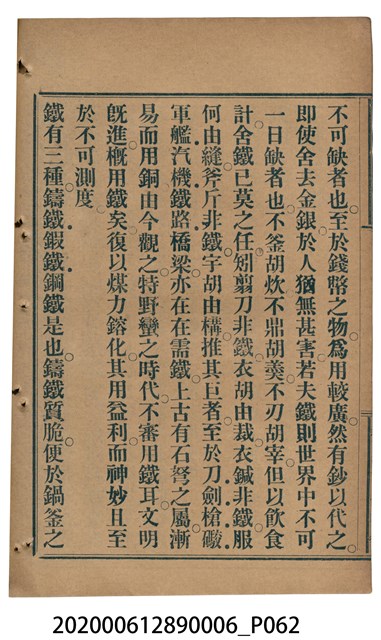 不可缺者也至於錢幣之物爲用較廣然有鈔以代之
即使舍去金銀於人猶無甚害若夫鐵則世界中不可
一日缺者也不釜胡炊不鼎胡羹不刃胡宰但以飲食
計舍鐵已莫之任矧翦刀非鐵衣胡由裁衣鍼非鐵服
何由縫斧斤非鐵宇胡由構推其巨者至於刀劍槍礮
軍艦汽機鐵路橋梁亦在在需鐵上古有石弩之屬漸
易而用銅由今觀之特野蠻之時代不審用鐵耳文明
旣進槪用鐵矣復以煤力鎔化其用益利而神妙且至
於不可測度
鐵有三種鑄鐵鍜鐵鋼鐵是也鑄鐵質脆便於鍋釜之
202000612890006_P062